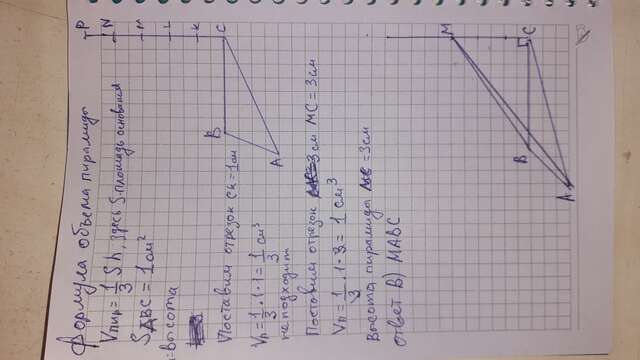 Формула объема пирамиды
Vпир = 1/3 Sh, здесь S-площадь основания
SABC = 1 см²
h=высота
Поставим отрезок CK = 1 см
Vп = 1/3 · 1 · 1 = 1/3 см³
не подходит
Поставим отрезок MC = 3 см
Vп = 1/3 · 1 · 3 = 1 см³
Высота пирамиды = 3 см
ответ В) MABC
P
N
M
L
K
C
B
A
M
C
B
A